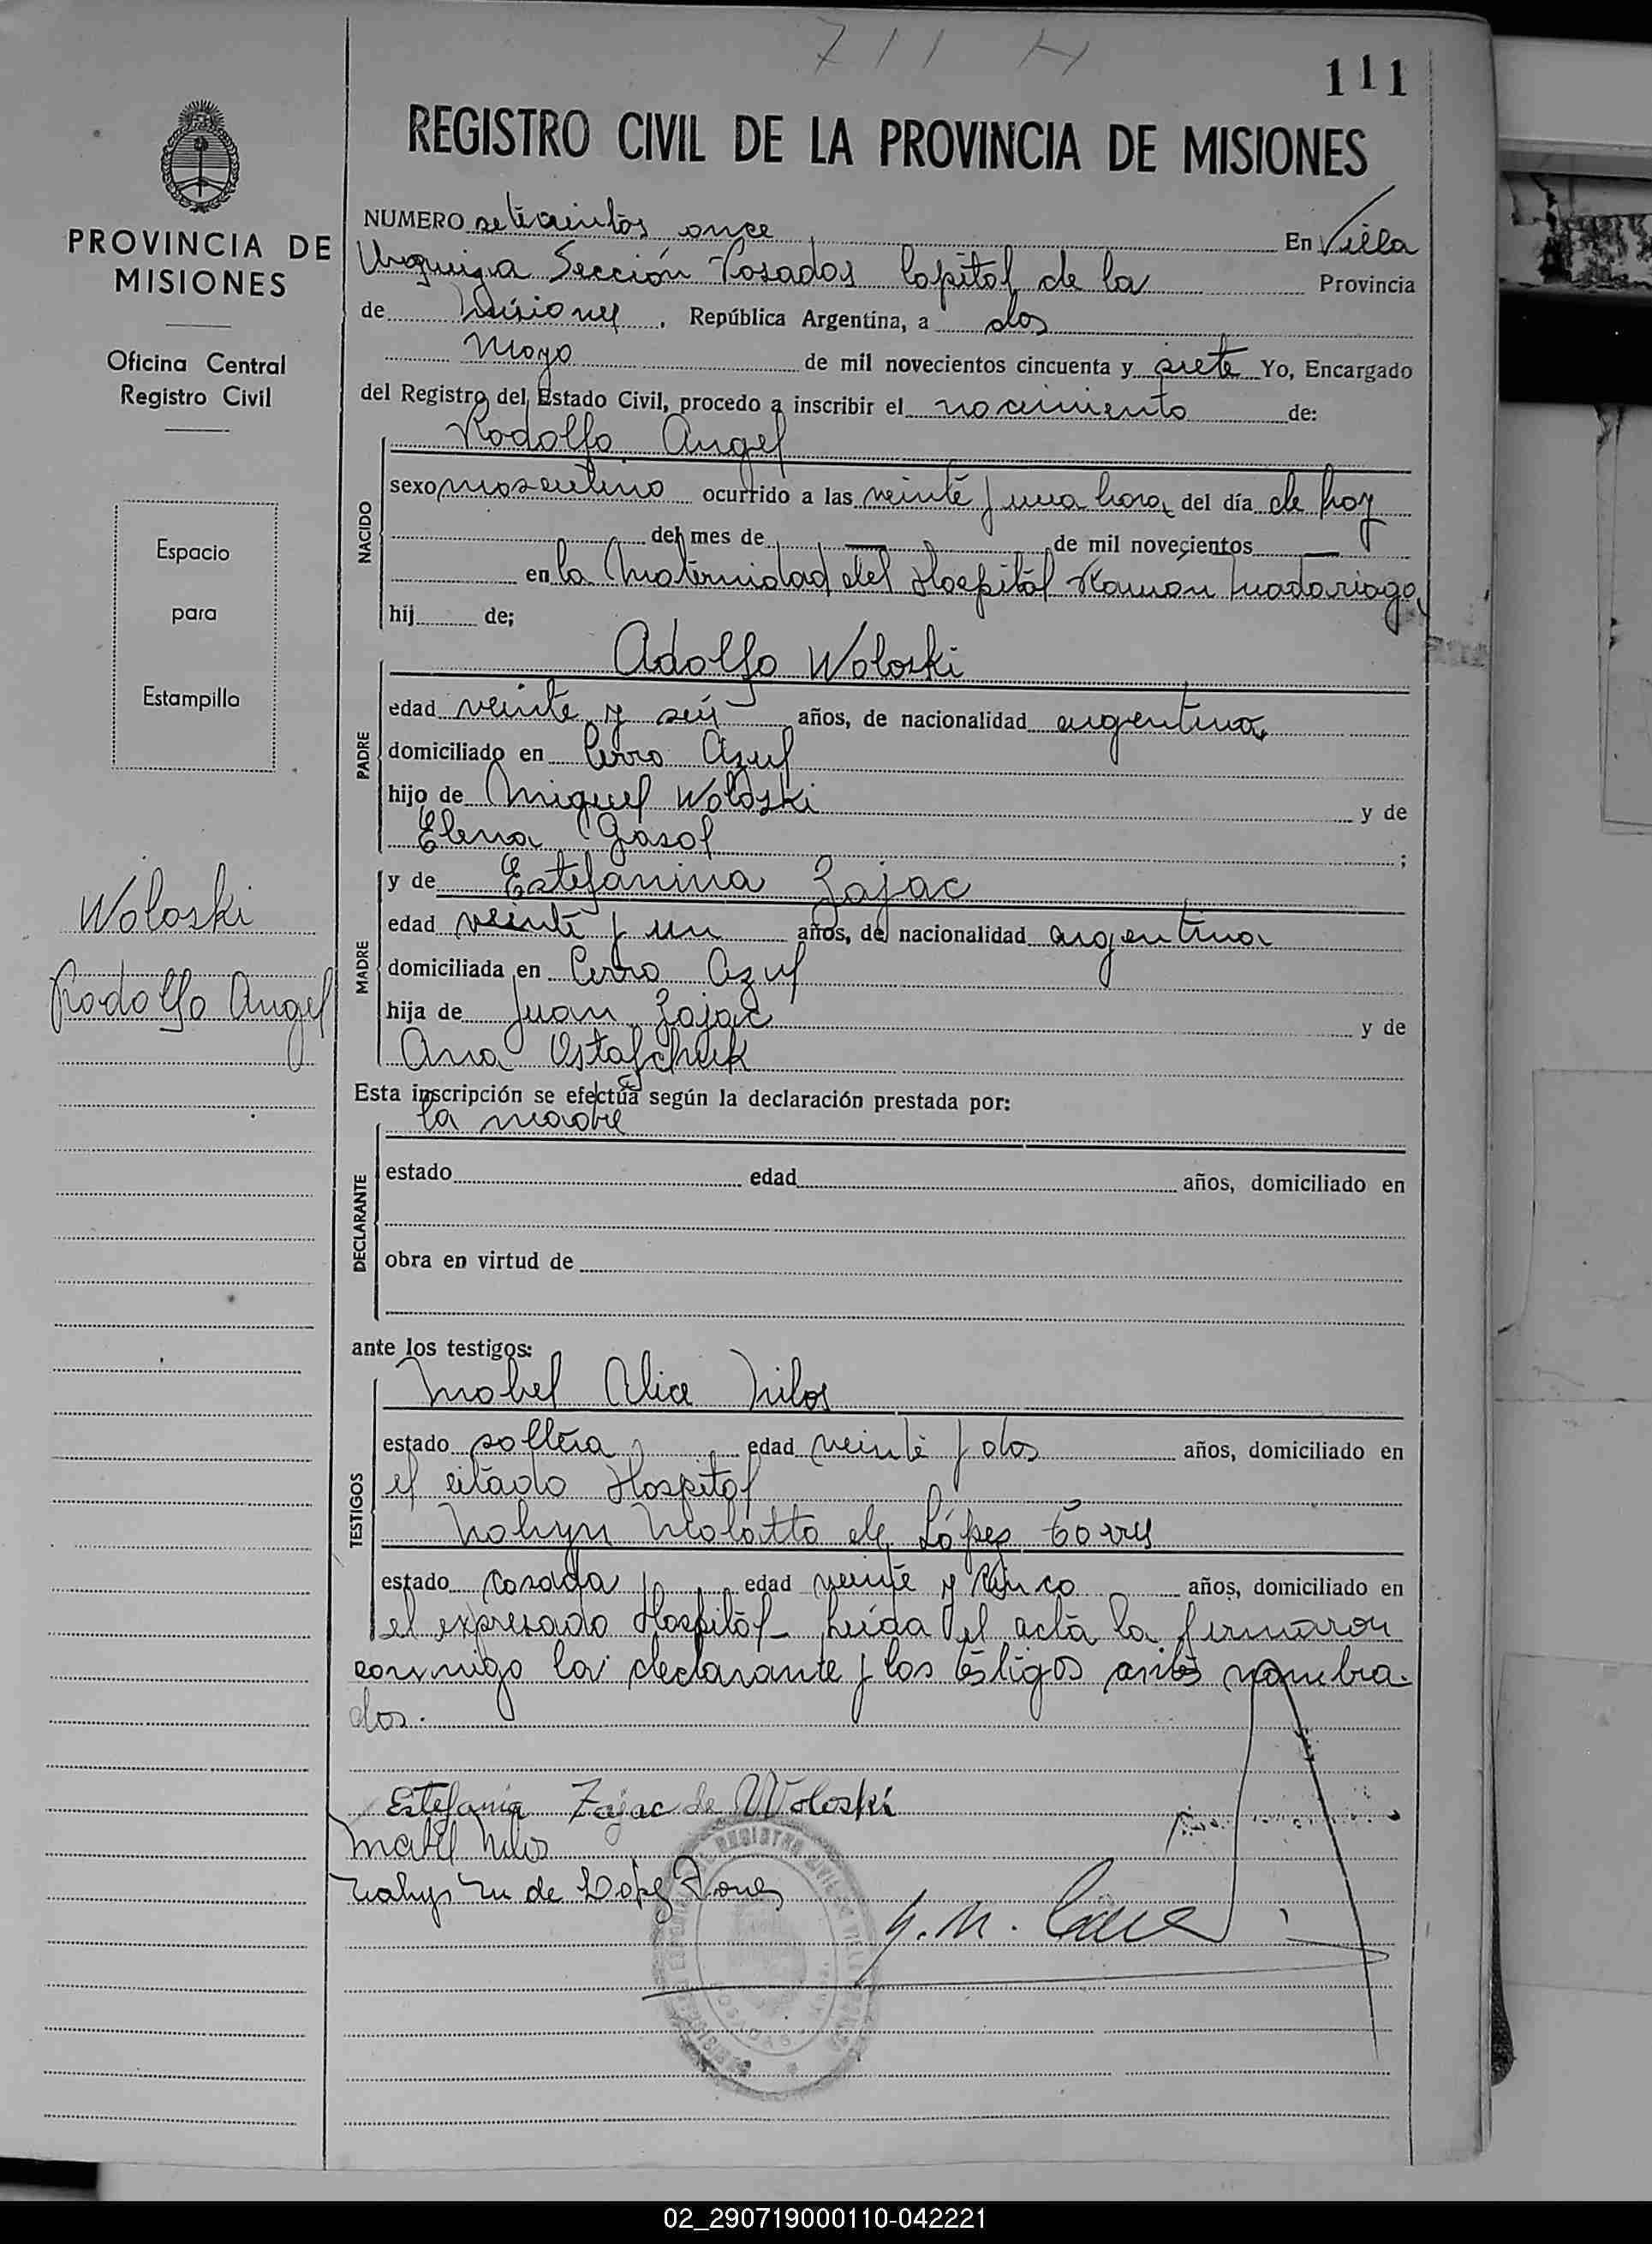 711 H
111
REGISTRO CIVIL DE LA PROVINCIA DE MISIONES
PROVINCIA DE
MISIONES
Oficina Central
Registro Civil
Espacio
para
Estampilla
Woloski
Rodolfo Angel
NUMERO setecientos once En Villa
Urquiza Sección Posadas Capital de la Provincia
de Misiones, República Argentina, a dos
Mayo de mil novecientos cincuenta y siete Yo, Encargado
del Registro del Estado Civil, procedo a inscribir el nacimiento de:
NACIDO
Rodolfo Angel
sexo masculino ocurrido a las veinte y una hora, del día de hoy
del mes de — de mil novecientos —
en la Maternidad del Hospital Ramón Madariaga,
hij de;
PADRE
Adolfo Woloski
edad veinte y seis años, de nacionalidad argentina,
domiciliado en Cerro Azul
hijo de Miguel Woloski y de
Elena Gasol ;
MADRE
y de Estefanina Zajac
edad veinte y un años, de nacionalidad argentina
domiciliada en Cerro Azul
hija de Juan Zajac y de
Ana Ostafchuk
Esta inscripción se efectúa según la declaración prestada por:
DECLARANTE
la madre
estado edad años, domiciliado en
obra en virtud de
ante los testigos:
TESTIGOS
Mabel Alice Nilos
estado soltera, edad veinte y dos años, domiciliado en
el citado Hospital
de López Torres
estado casada edad veinte y cinco años, domiciliado en
el expresado Hospital- Leída el acta la firmaron
conmigo la declarante y los testigos antes nombra-
dos.-
Estefania Zajac de Woloski
Mabel Nilos
de López Torres
02_290719000110-042221